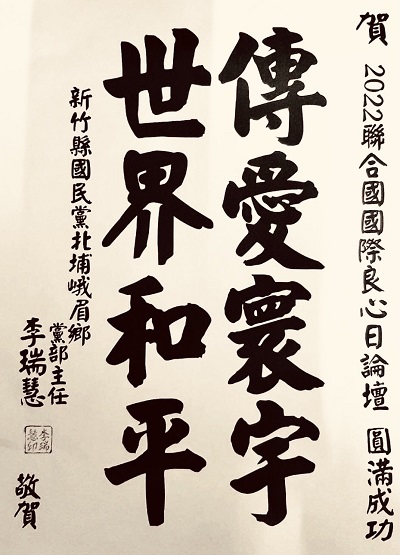 賀 2022聯合國國際良心日論壇 圓滿成功
傳愛寰宇
世界和平
新竹縣國民黨北埔峨眉鄉
黨部主任
李瑞慧
李瑞
慧印
敬賀